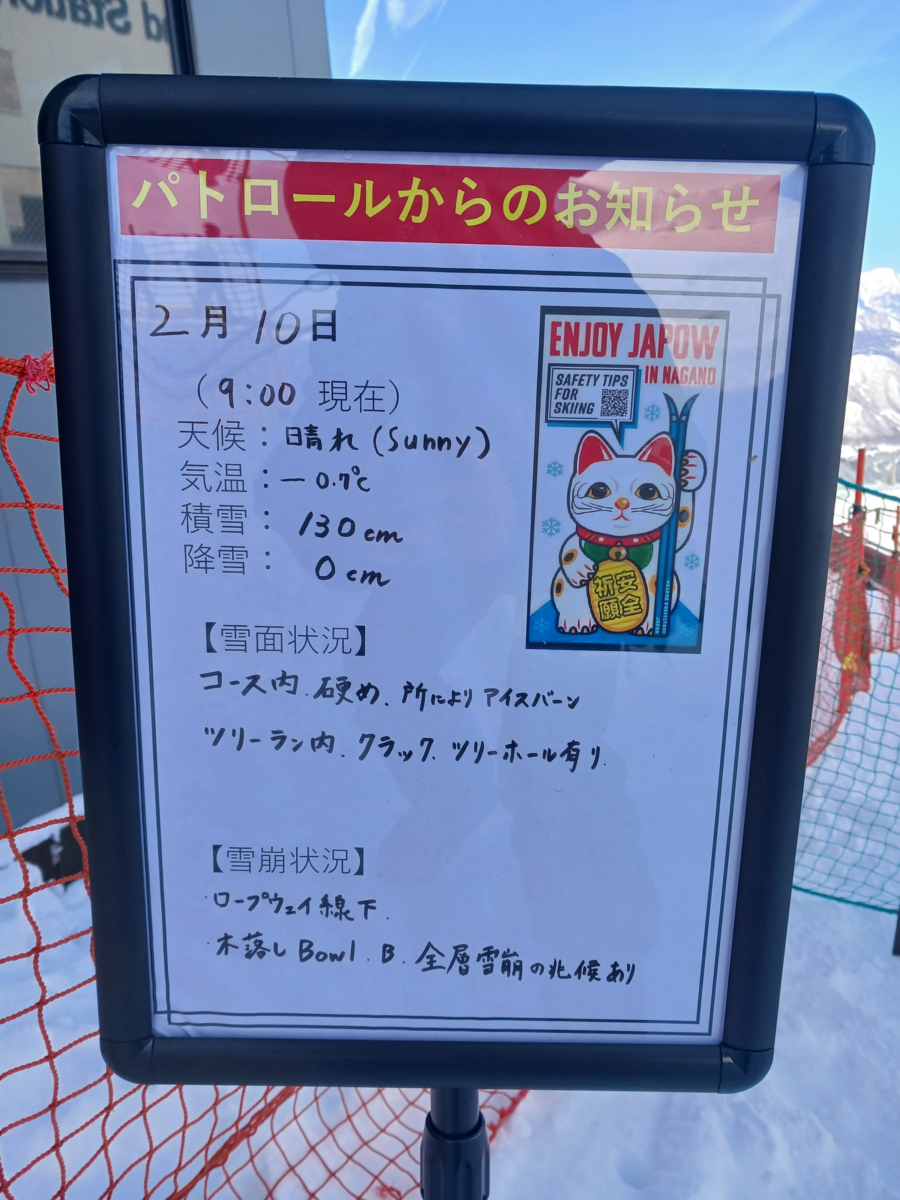 パトロールからのお知らせ
2月10日
(9:00 現在)
天候：晴れ(Sunny)
気温：-0.7℃
積雪：130cm
降雪：0cm
ENJOY JAPOW
IN NAGANO
SAFETY TIPS
FOR
SKIING
安全
祈願
【雪面状況】
コース内、硬め、所によりアイスバーン
ツリーラン内、クラック、ツリーホール有り.
【雪崩状況】
・ロープウェイ線下.
・木落しBowl.B.全層雪崩の兆候あり